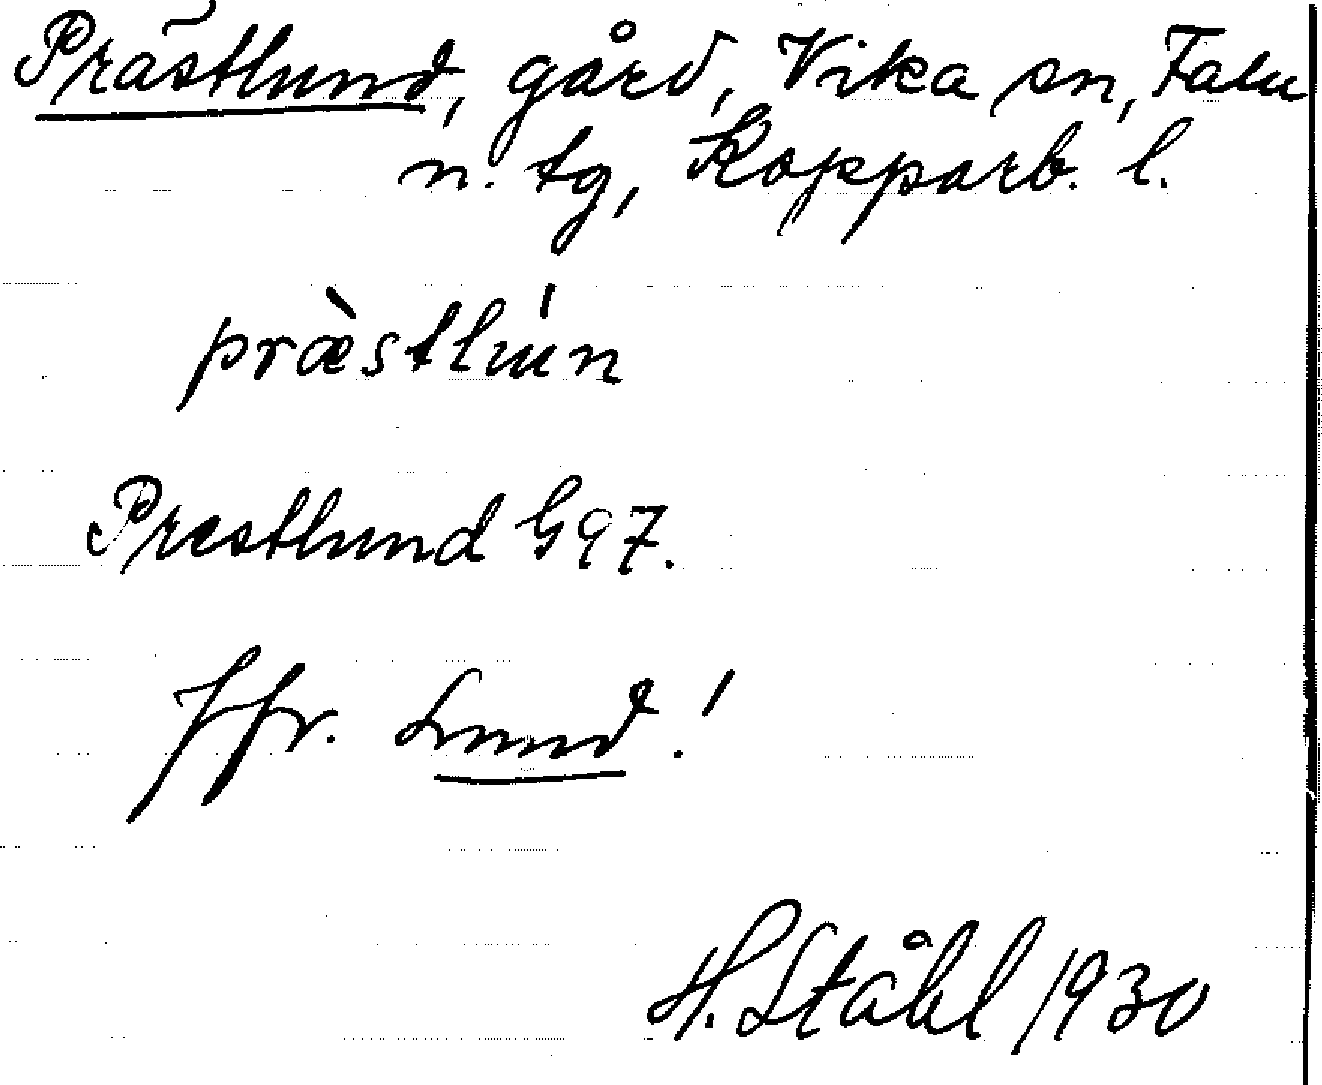 Prästlund, gård, Vika sn, Falu
n. tg, Kopparb. l.
præ̀stlún
Prestlund G97.
Jfr. Lund!
H. Ståhl 1930